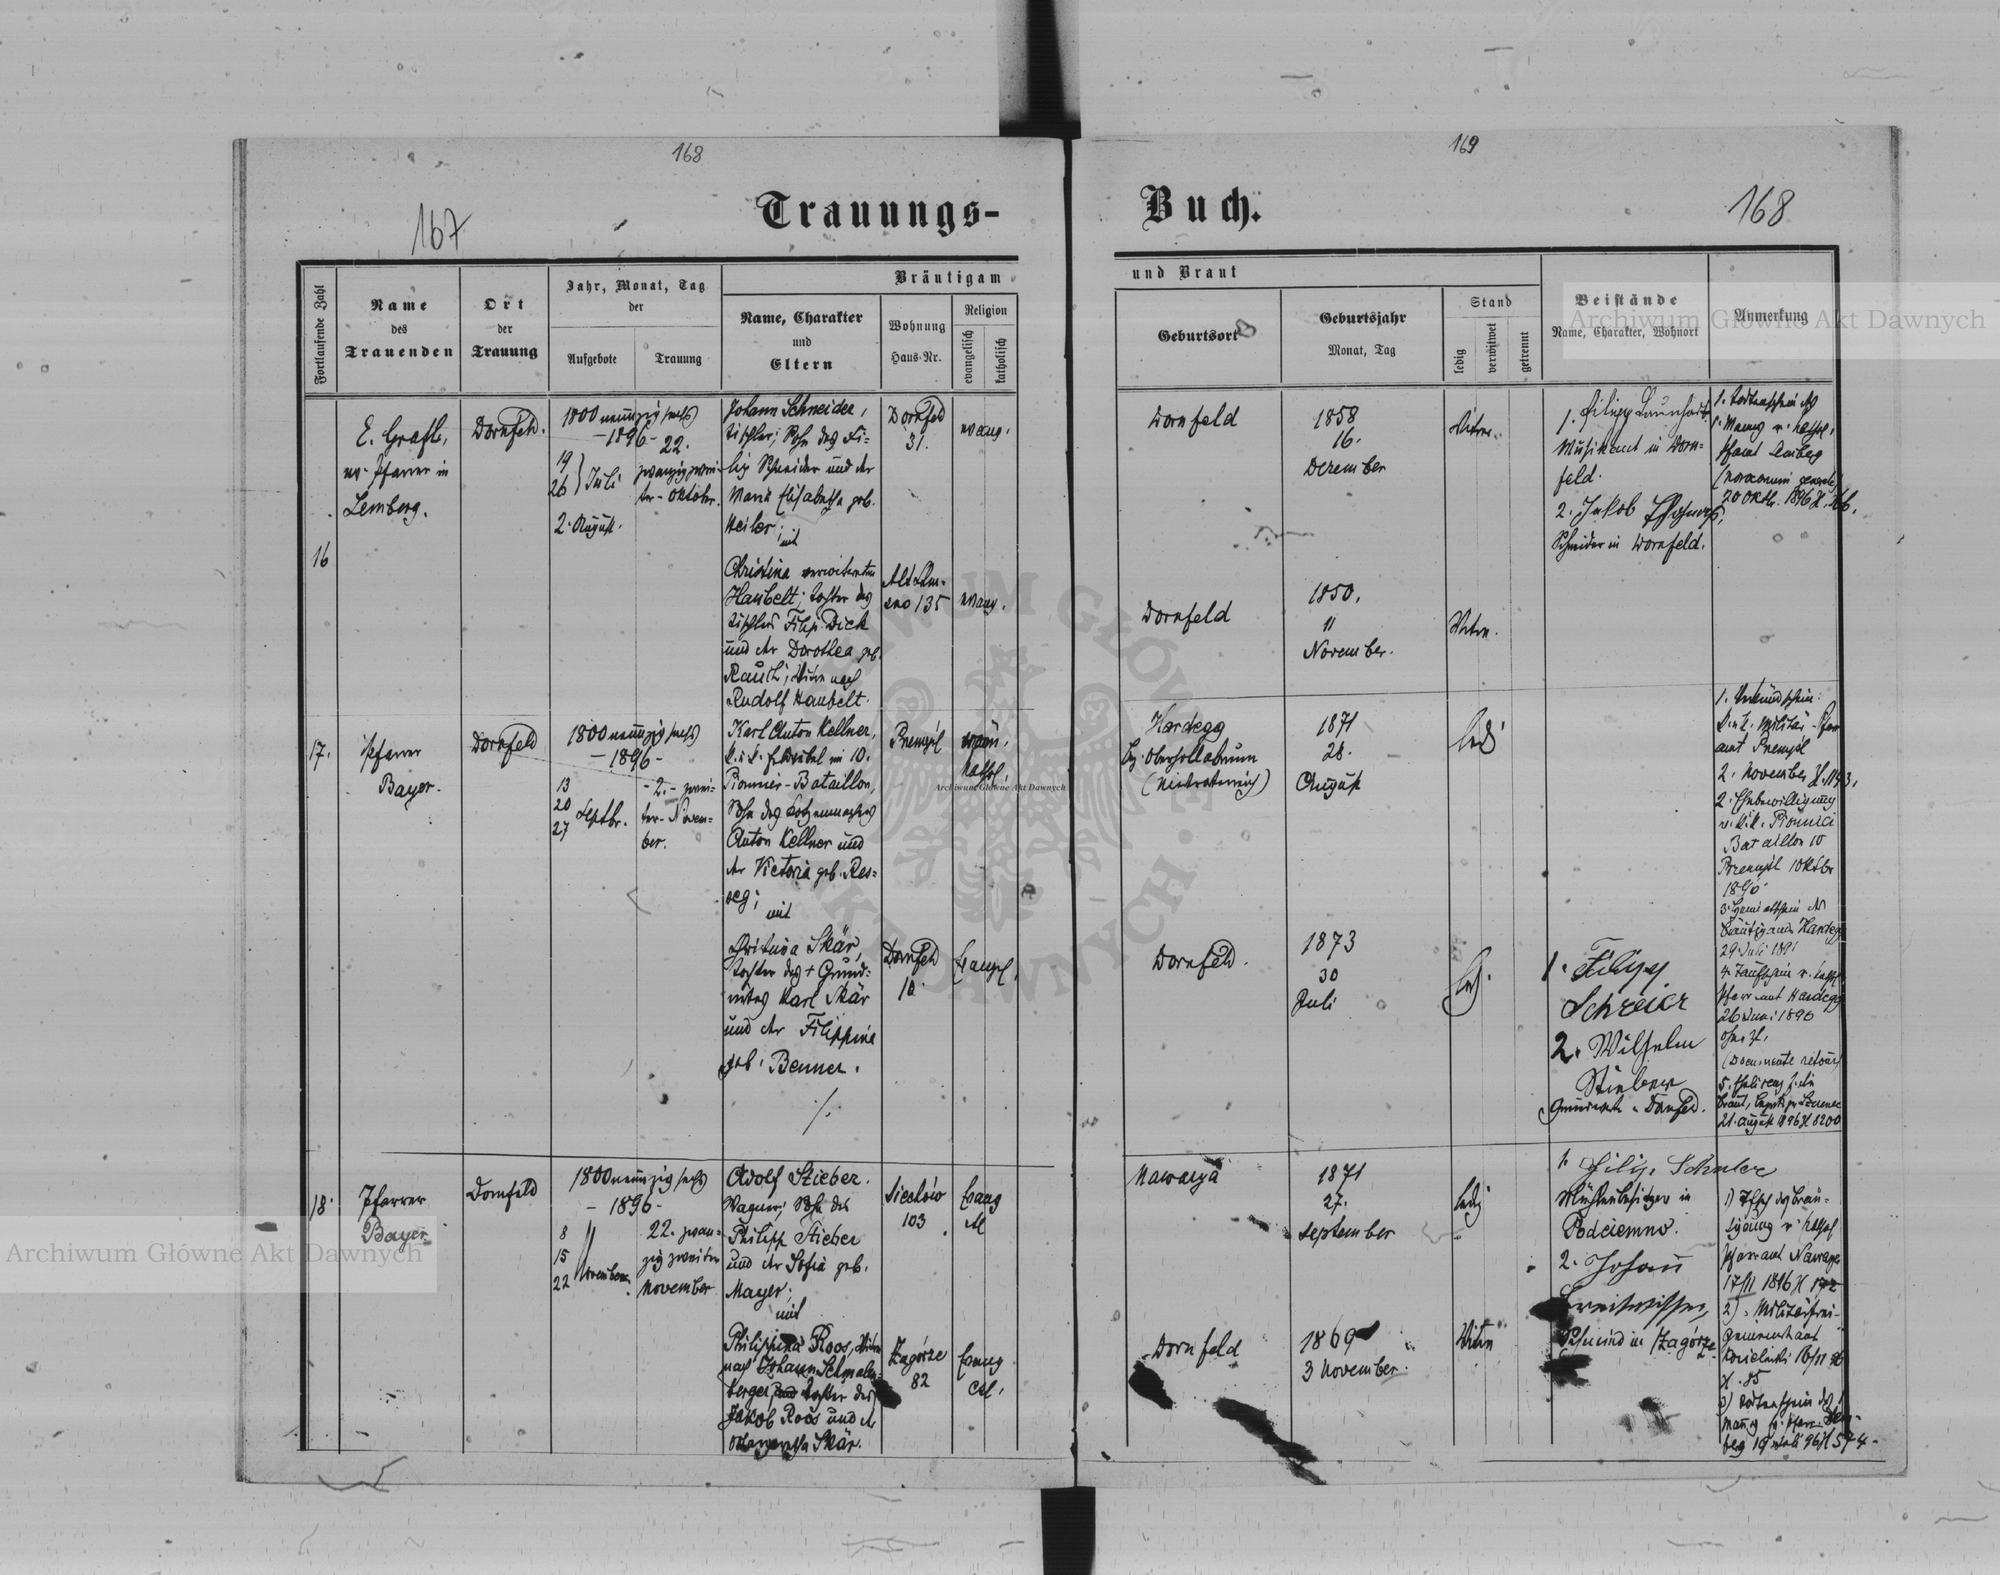 168
169
167
168
Trauungs-
Buch.
Fortlaufende Zahl
Name
des
Trauenden
Ort
der
Trauung
Jahr, Monat, Tag
der
Aufgebote
Trauung
Bräutigam
Name, Charakter
und
Eltern
Wohnung
Haus-Nr.
Religion
evangelisch
katholisch
und Braut
Geburtsort
Geburtsjahr
Monat, Tag
Stand
ledig
verwitwet
getrennt
Beistände
Name, Charakter, Wohnort
Anmerkung
16
E. Grafl,
ev. Pfarrer in
Lemberg.
Dornfeld.
1800 neunzig sechs
-1896-
19
26 } Juli
2. August.
22.
zwanzig zwei-
ter Oktober.
Johann Schneider,
Tischler; Sohn des Fi-
lip Schneider und der
Maria Elisabetha geb.
Heiler;
mit
Christina verwitwete
Haubelt; Tochter des
Tischlers Filip Dick
und der Dorothea geb.
Rauch; Witwe nach
Rudolf Haubelt.
Dornfeld
31.
evang.
135
evang.
Dornfeld
1858
16.
Dezember
Witwer.
Dornfeld
1850.
11
November.
Witwe.
1. Filipp
Musikant in Dorn-
feld.
2. Jakob
Schneider in Dornfeld.
1. Todtenschein des
1. Mannes v. kathol.
Pfarramt Lemberg
20 Oktb. 1896
17.
Pfarrer
Bayer.
Dornfeld
1800 neunzig sechs
-1896-
13
20
27 Septbr.
-2.- zwei-
ter- Novem-
ber.
Karl Anton Kellner,
k.u.k. Feldwebel im 10.
Pionnier-Bataillon,
Sohn des
Anton Kellner und
der Victoria geb. Res-
seg;
mit
Christina Skär,
Tochter des + Grund-
wirtes Karl Skär
und der Filippina
geb. Benner.
Przemyśl
röm.
kathol.
Dornfeld
10.
Evangel.
Hardegg
Bez. Oberhollabrunn
(Niederösterreich)
1871
28.
August
led.
Dornfeld.
1873
30
Juli
led.
1. Filipp
Schreier
2. Wilhelm
Stieber
Grundwirte in Dornfeld.
1. Verkündschein
k.u.k. Militär-Pfarr
amt Przemyśl
2. November
2. Ehebewilligung
v. k.u.k. Pionnier
Bataillon 10
Przemyśl 1 Oktbr
1896
3. Heimatschein des
Bräutigams Hardegg
29 Juli 1891
4. Taufschein v. kathol.
Pfarramt Hardegg
26 Juni 1896
ohne Zl.
(Documente retour)
21. August 1896 Zl 8200
18.
Pfarrer
Bayer
Dornfeld
1800 neunzig sechs
-1896-
8
15
22 November
22. zwan-
zig zweiter
November
Adolf Stieber.
Wagner; Sohn des
Philipp Stieber
und der Sofia geb.
Mayer;
mit
Philippina Roos, Witwe
nach Johann Schmalen-
berger, Tochter des
Jakob Roos und der
Margaretha Skär.
Siechów
103
Evang
AC
Zagórze
82
Evang
Nawarya
1871
27.
September
ledig
Dornfeld
1869
3 November.
Witwe
1. Filip. Schuler
Mühlenbesitzer in
Podciemno.
2. Johann
Schmied in Zagórze
Pfarramt Nawarya
17/11 1896 Zl 172
2)
16/11 96
Zl. 85
3) Todtenschein des 1
Mannes
berg 19 Juli 96 Zl 574.
Archiwum Główne Akt Dawnych
Archiwum Główne Akt Dawnych
Archiwum Główne Akt Dawnych
ARCHIWUM GŁÓWNE AKT DAWNYCH